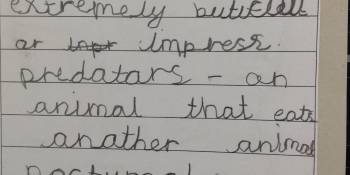 extremely
or impress.
predatars - an
animal that eats
anather animal
nocturnal